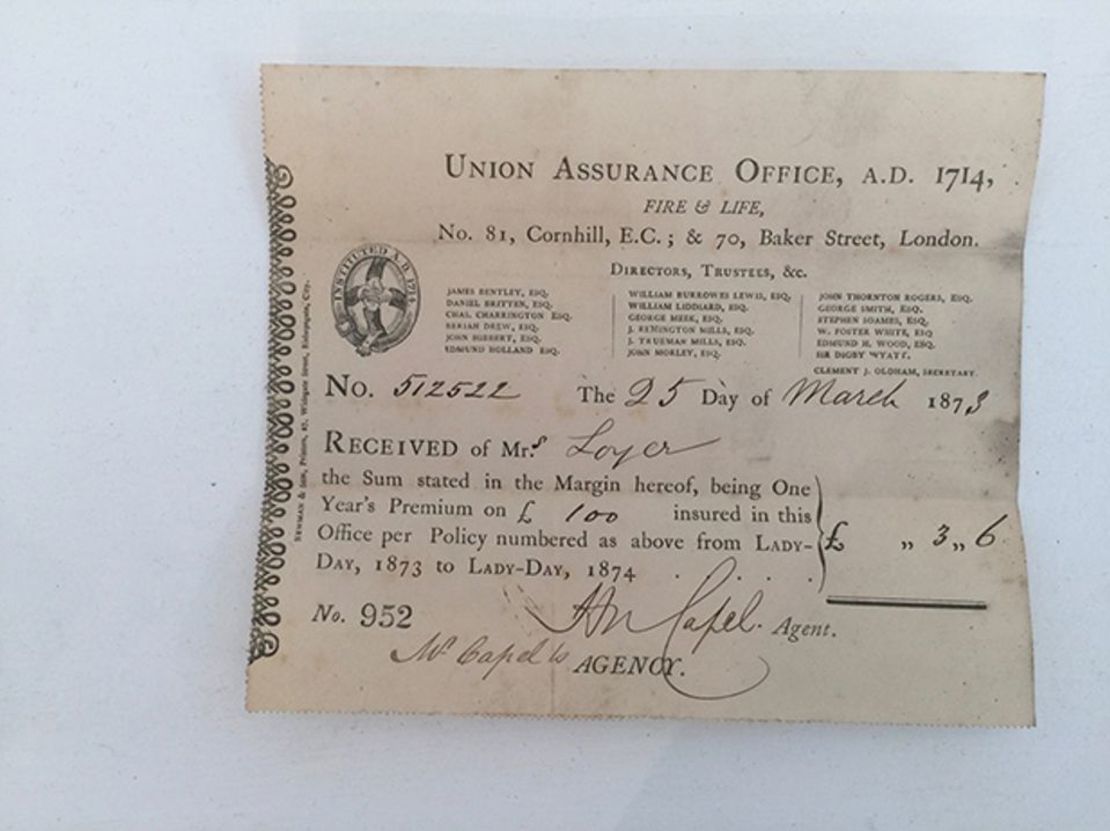 UNION ASSURANCE OFFICE, A.D. 1714,
FIRE & LIFE,
No. 81, Cornhill, E.C.; & 70, Baker Street, London.
DIRECTORS, TRUSTEES, &c.
INSTITUTED A.D. 1714
JAMES BENTLEY, ESQ.
DANIEL BRITTEN, ESQ.
CHAS. CHARRINGTON ESQ.
BERIAH DREW, ESQ.
JOHN HIBBERT, ESQ.
EDMUND HOLLAND ESQ.
WILLIAM BURROWES LEWIS, ESQ,
WILLIAM LIDDIARD, ESQ.
GEORGE MEEK, ESQ.
J. REMINGTON MILLS, ESQ.
J. TRUEMAN MILLS, ESQ.
JOHN MORLEY, ESQ.
JOHN THORNTON ROGERS, ESQ.
GEORGE SMITH, ESQ.
STEPHEN SOAMES, ESQ.
W. FOSTER WHITE, ESQ
EDMUND H. WOOD, ESQ.
SIR DIGBY WYATT.
CLEMENT J. OLDHAM, SECRETARY.
No. 512522 The 25 Day of March 1873
RECEIVED of Mrs Loyer
the Sum stated in the Margin hereof, being One
Year's Premium on £ 100 insured in this
Office per Policy numbered as above from LADY-
DAY, 1873 to LADY-DAY, 1874 . . . .
£ „ 3 „ 6
No. 952
Capel. Agent.
Mr Capel's AGENCY.
NEWMAN & Son, Printers, Widegate Street, Bishopsgate, City.